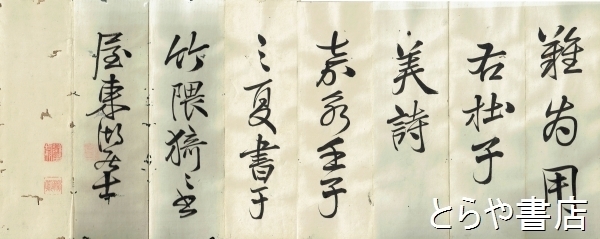 難為用
右杜子
美詩
嘉永壬子
之夏書于
竹隈猗々
屋東湖
とらや書店